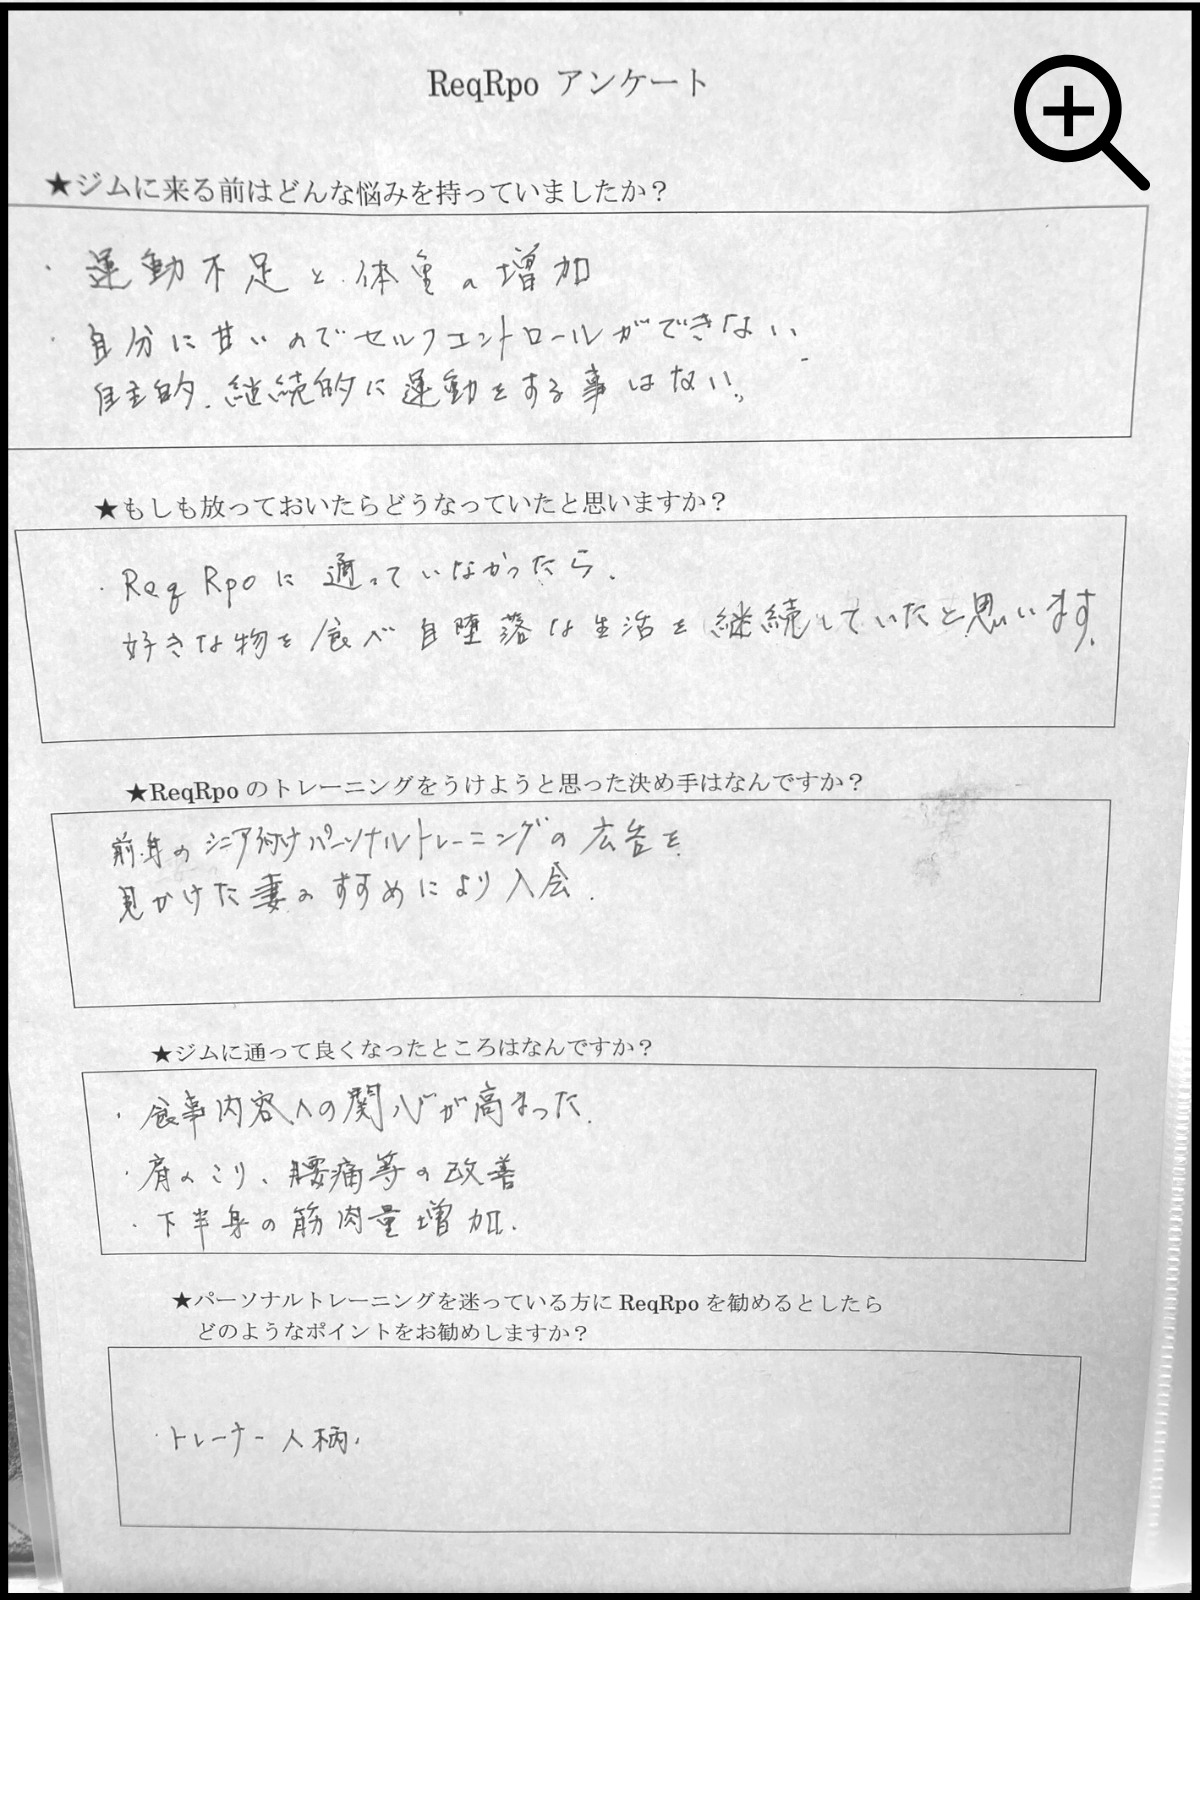 ReqRpo アンケート
★ジムに来る前はどんな悩みを持っていましたか？
・運動不足と体重の増加
・自分に甘いのでセルフコントロールができない、
自主的、継続的に運動をする事はない。
★もしも放っておいたらどうなっていたと思いますか？
・ReqRpoに通っていなかったら、
好きな物を食べ自堕落な生活を継続していたと思います。
★ReqRpoのトレーニングをうけようと思った決め手はなんですか？
前年のシニア向けパーソナルトレーニングの広告を
見かけた妻のすすめにより入会．
★ジムに通って良くなったところはなんですか？
・食事内容への関心が高まった．
・肩のこり、腰痛等の改善
・下半身の筋肉量増加．
★パーソナルトレーニングを迷っている方にReqRpoを勧めるとしたら
どのようなポイントをお勧めしますか？
・トレーナー人柄．